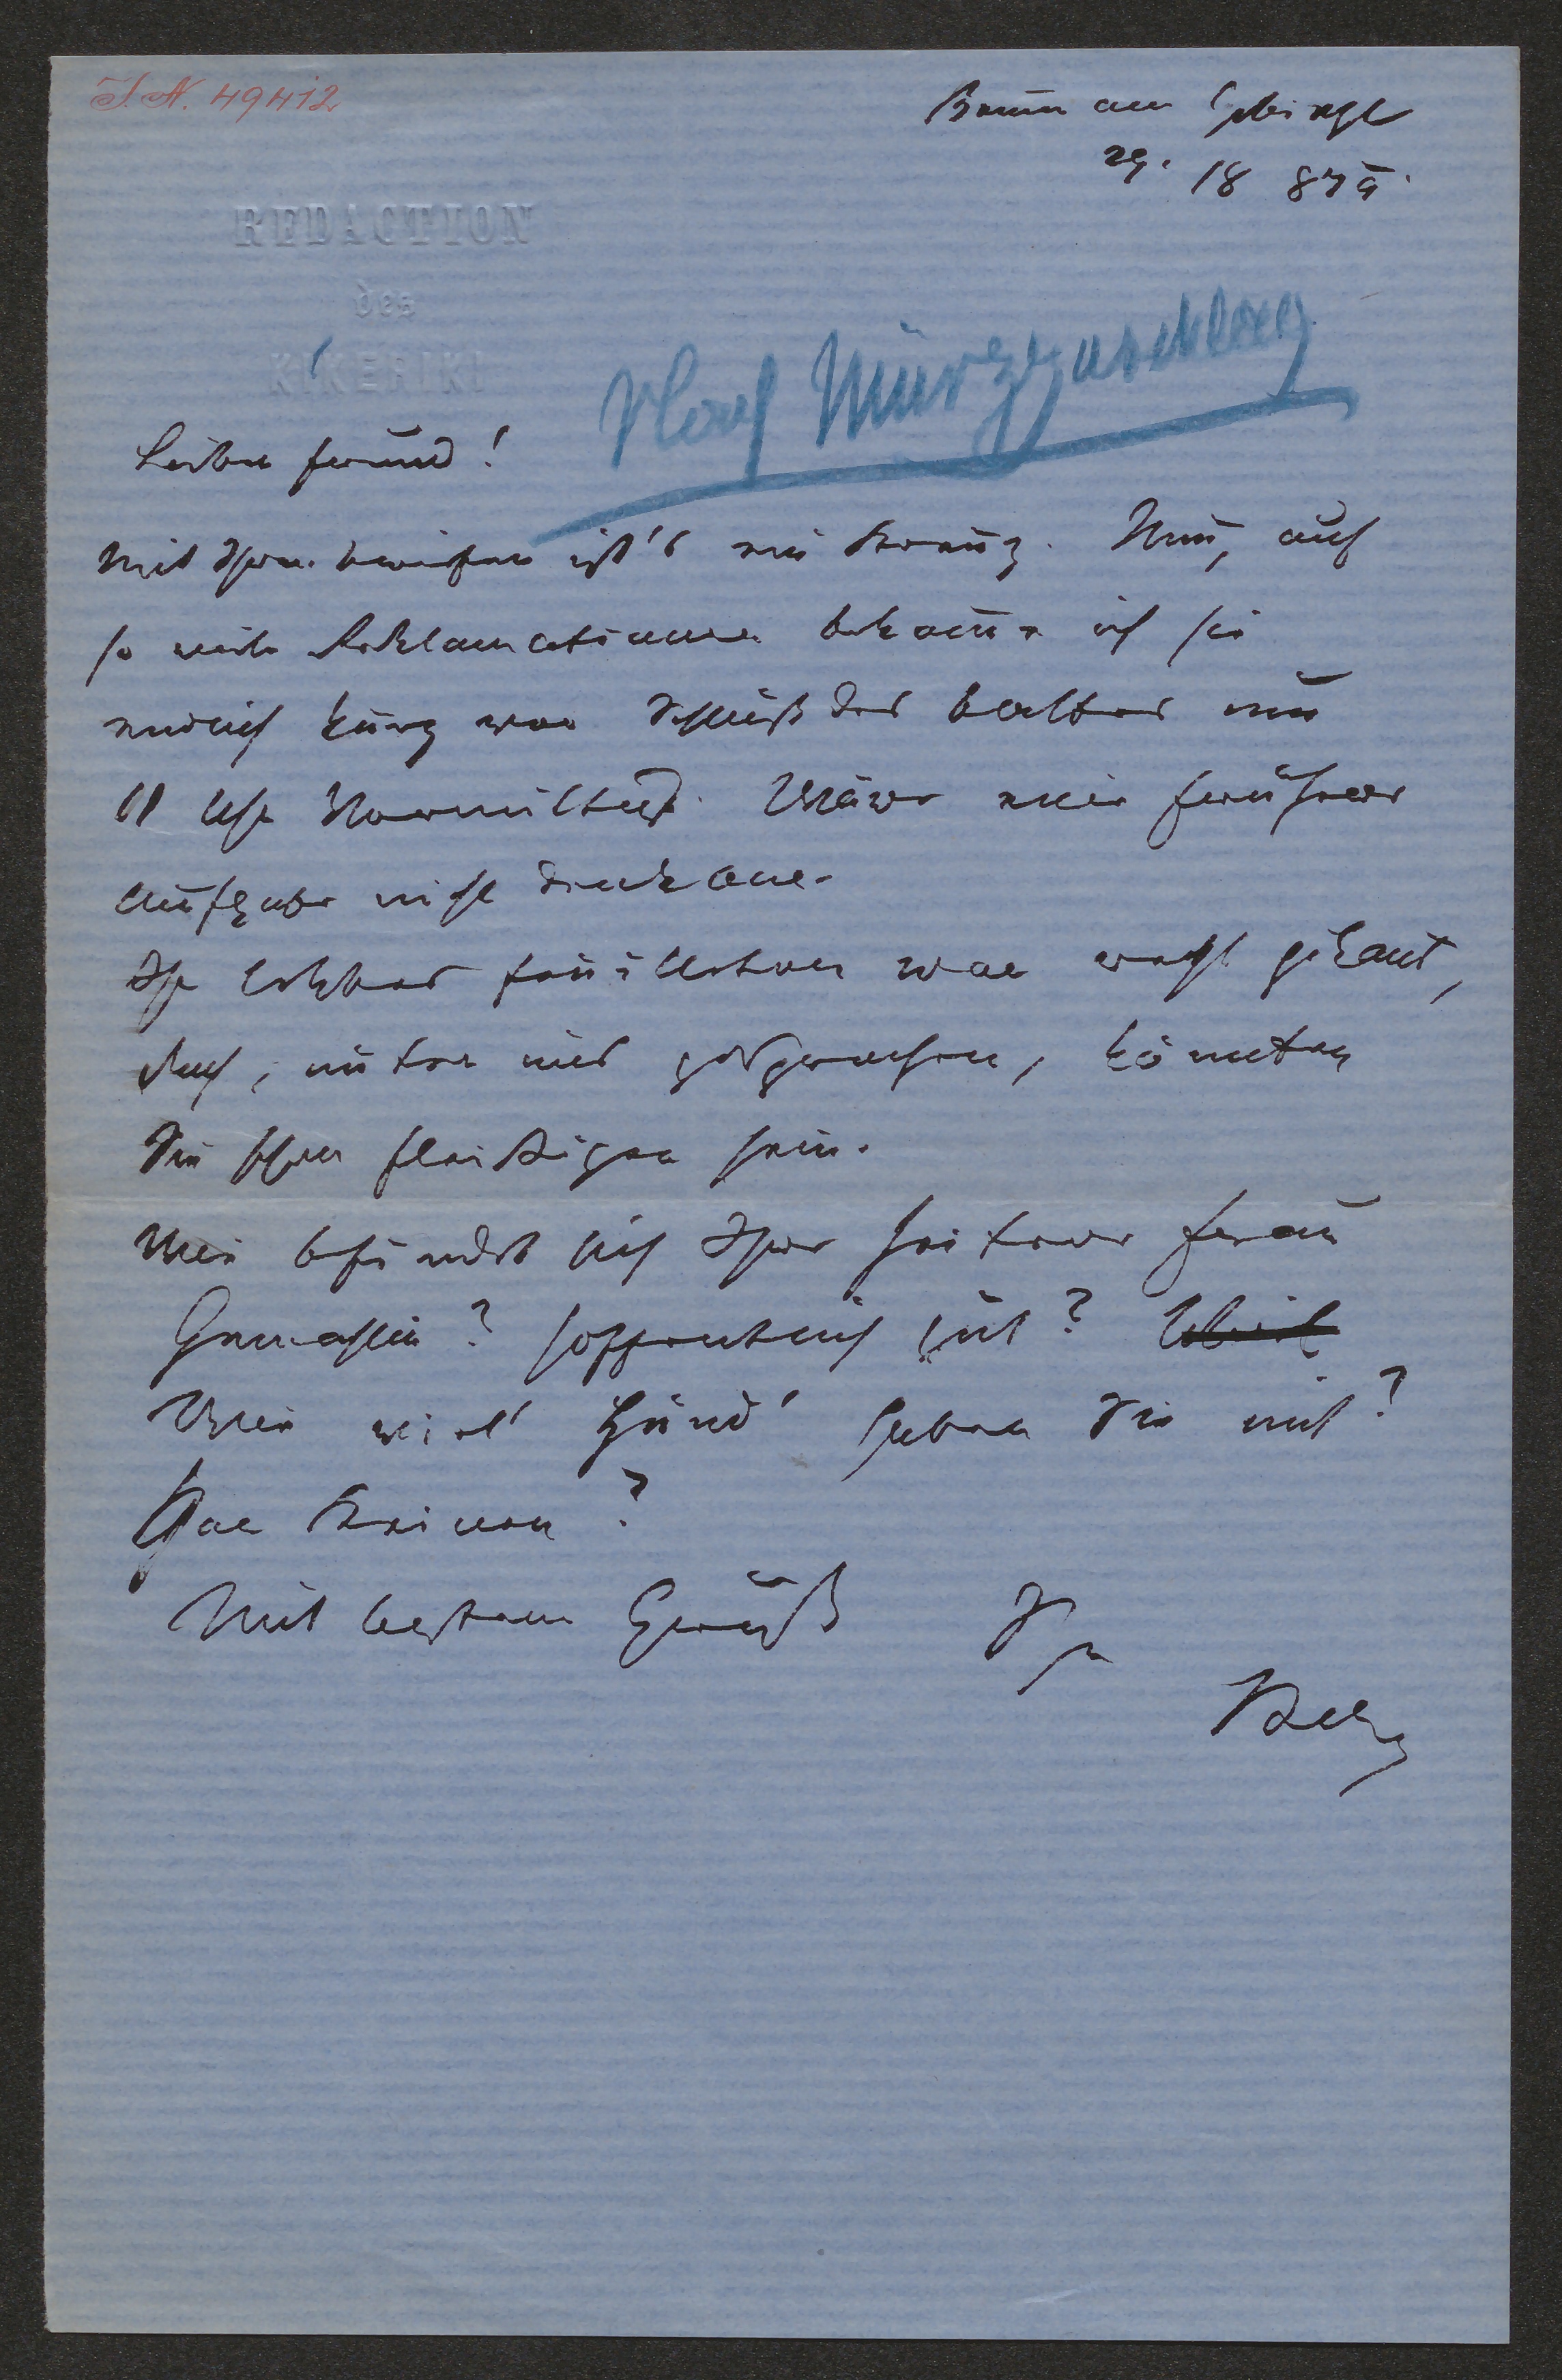 I. N. 49412
Brunn am Gebirge
29. 18 87
REDACTION
des
KIKERIKI
Nach Mürzzuschlag
Lieber Freund!
Mit Ihren Briefen ist's ein Kreuz. Nun, auf
so viele Reklamationen bekam ich sie
endlich kurz vor Schluß des Blattes um
11 Uhr Vormittag. Wäre eine frühere
Aufgabe nicht denkbar.
Ihr letztes Feuilleton war recht gelaunt,
doch, unter uns gesprochen, könnten
Sie schon fleißiger sein.
Wie befindet sich Ihre heitere Frau
Gemahlin? Hoffentlich gut?
Wie viel' Hund' haben Sie mit?
Gar keinen?
Mit bestem Gruß Ihr
Berg